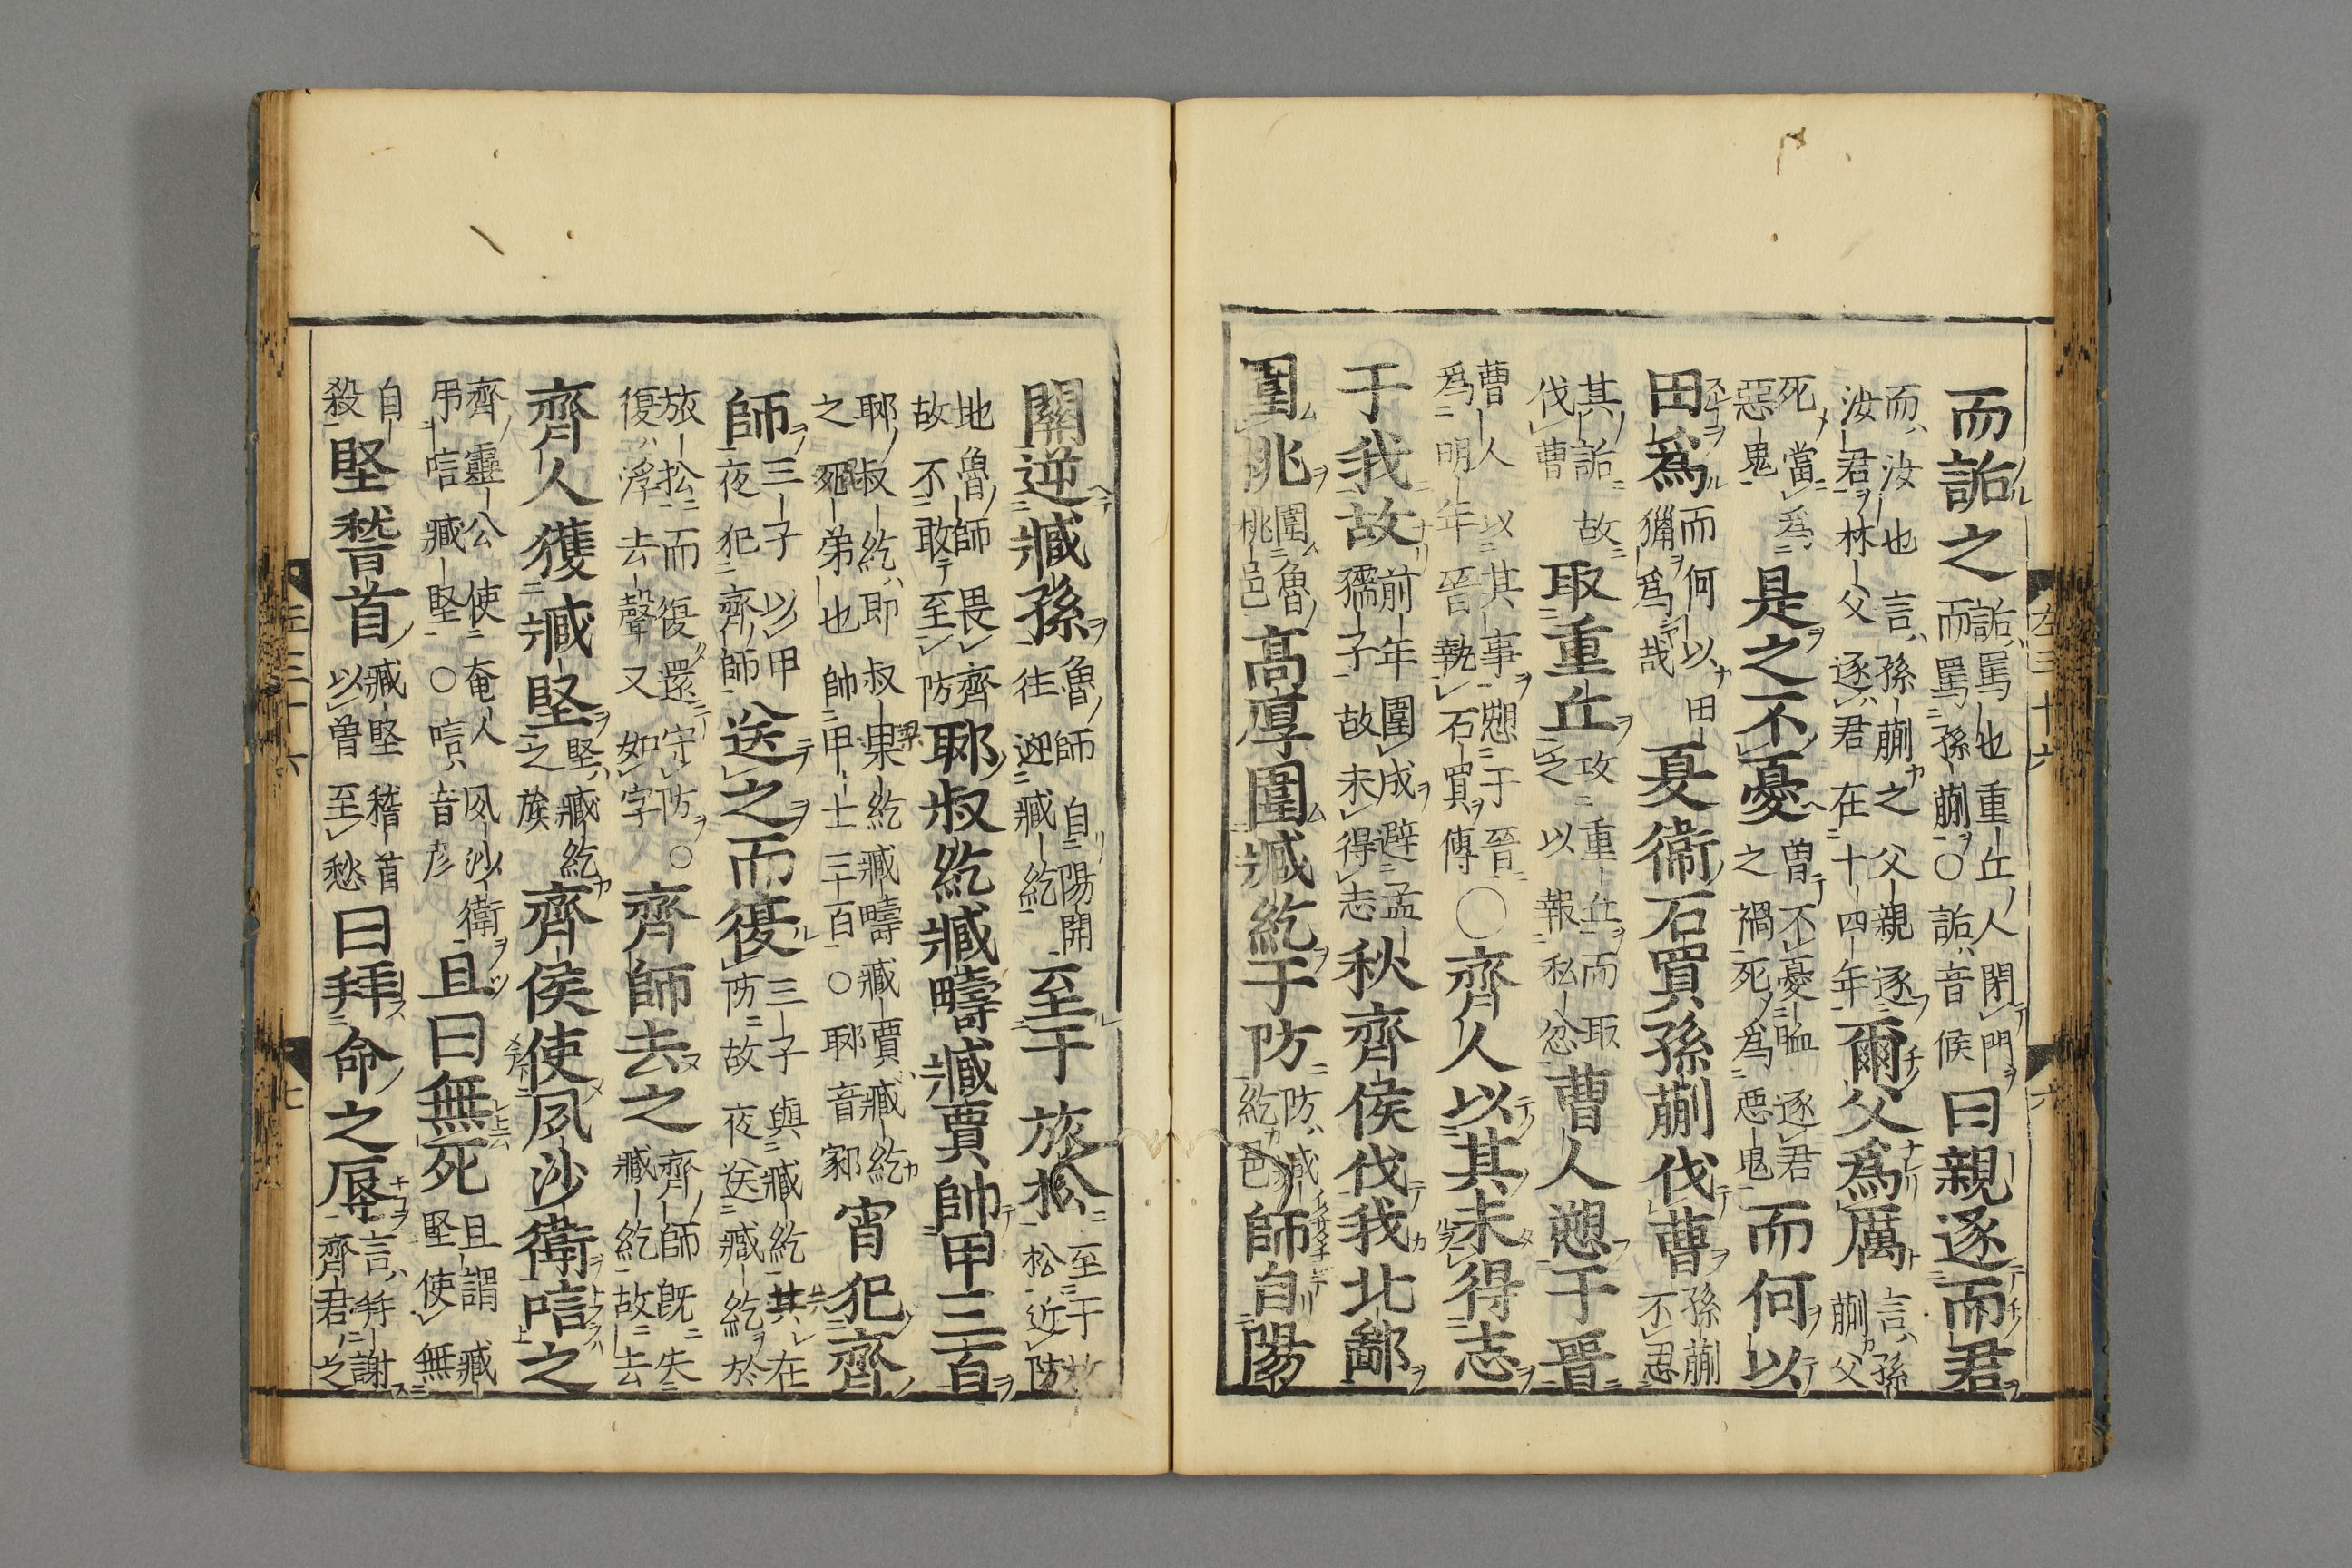 而詬之詬罵也重丘人閉門而罵孫蒯○詬音候曰親逐而君
而汝也言孫蒯之父親逐汝君林父逐君在十四年爾父爲厲言孫蒯父
死當爲惡鬼是之不憂曽不憂恤逐君之禍死爲惡鬼而何以
田爲而何以田獵爲哉夏衞石買孫蒯伐曹孫蒯不忍
其詬故伐曹取重丘攻重丘而取之以報私忿曹人愬于晉
曹人以其事愬于晉爲明年晉執石買傳○齊人以其未得志
于我故前年圍成避孟孺子故未得志秋齊侯伐我北鄙
圍桃圍魯桃邑高厚圍臧紇于防防臧紇邑師自陽
關逆臧孫魯師自陽関往迎臧紇至于旅松至于旅松近防
地魯師畏齊故不敢至防耶叔紇臧疇臧賈帥甲三百
耶叔紇即叔梁紇臧疇臧賈臧紇之昆弟也帥甲士三百○耶音鄹宵犯齊
師三子以甲夜犯齊師送之而復三子與臧紇共在防故夜送臧紇於
旅松而復還守防○復浮去聲又如字齊師去之齊師既失臧紇故去
齊人獲臧堅堅臧紇之族齊侯使夙沙衞唁之
齊靈公使奄人夙沙衞弔唁臧堅○唁音彦且曰無死且謂臧堅使無
自殺堅稽首臧堅稽首以曽至愁曰拜命之辱言拜謝齊君之
左三十六
六
左三十六
七